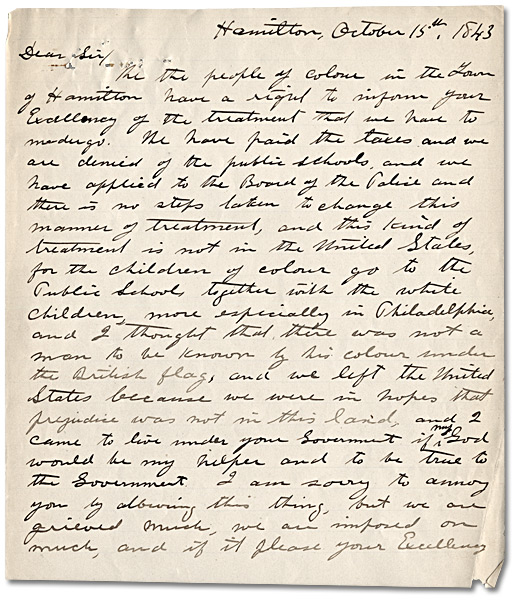 Hamilton, October 15th, 1843
Dear Sir/
We the people of colour in the Town
of Hamilton have a right to inform your
Excellency of the treatment that we have to
undergo. We have paid the taxes and we
are denied of the public schools, and we
have applied to the Board of the Police and
there is no steps taken to change this
manner of treatment, and this kind of
treatment is not in the United States,
for the children of colour go to the
Public Schools together with the white
children, more especially in Philadelphia,
and I thought that there was not a
man to be known by his colour under
the British flag, and we left the United
States because we were in hopes that
prejudice was not in this land, and I
came to live under your Government if my God
would be my helper and to be true to
the Government. I am sorry to annoy
you by allowing this thing, but we are
grieved much, we are imposed on
much, and if it please your Excellency